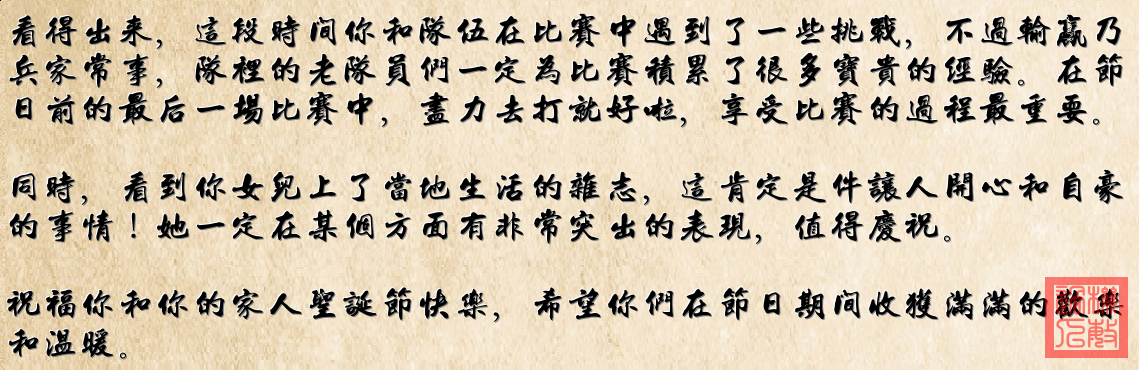 看得出来，這段時间你和隊伍在比賽中遇到了一些挑戰，不過輸贏乃
兵家常事，隊裡的老隊員們一定為比賽積累了很多寶貴的經驗。在節
日前的最后一場比賽中，盡力去打就好啦，享受比賽的過程最重要。
同時，看到你女兒上了當地生活的雜志，這肯定是件讓人開心和自豪
的事情！她一定在某個方面有非常突出的表現，值得慶祝。
祝福你和你的家人聖誕節快樂，希望你們在節日期间收獲滿滿的歡樂
和溫暖。